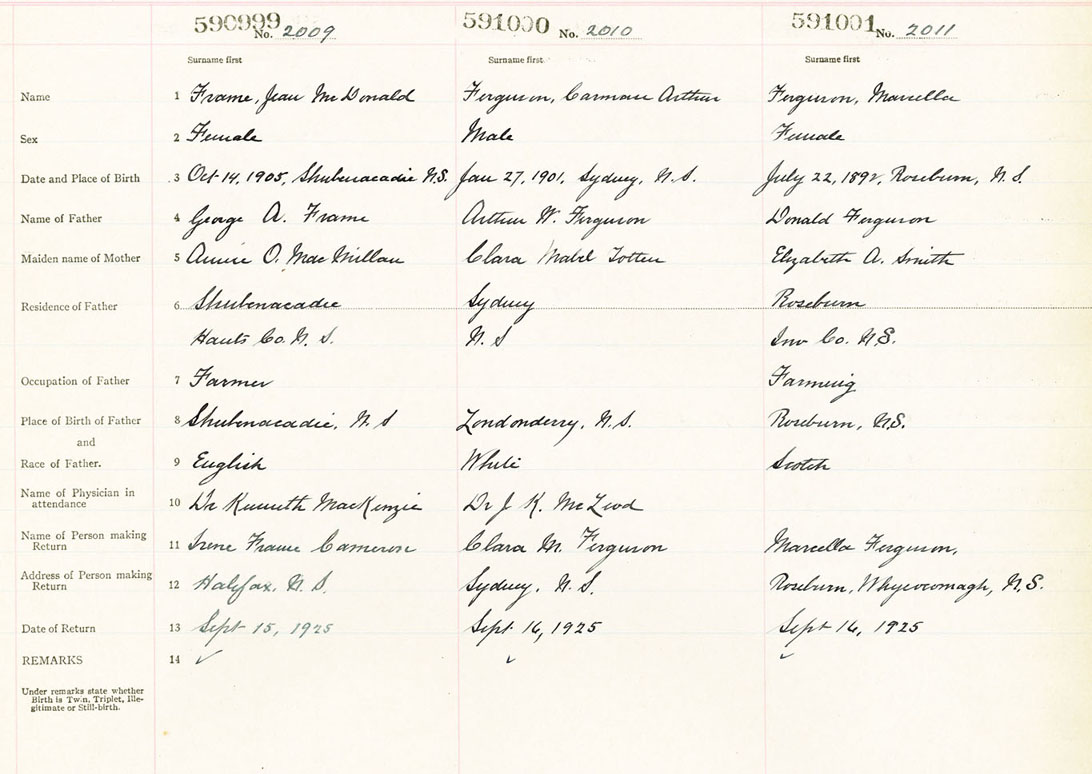 590999 No. 2009 591000 No. 2010 591001 No. 2011
Surname first Surname first Surname first
Name 1 Frame, Jean McDonald Ferguson, Carman Arthur Ferguson, Marcella
Sex 2 Female Male Female
Date and Place of Birth 3 Oct 14, 1905, Shubenacadie N.S. Jan 27, 1901, Sydney, N.S. July 22, 1892, Roseburn, N.S.
Name of Father 4 George A. Frame Arthur W. Ferguson Donald Ferguson
Maiden name of Mother 5 Annie O. MacMillan Clara Mabel Totten Elizabeth A. Smith
Residence of Father 6 Shubenacadie Sydney Roseburn
Hants Co. N.S. N.S Inv Co. N.S.
Occupation of Father 7 Farmer Farming
Place of Birth of Father 8 Shubenacadie, N.S Londonderry, N.S. Roseburn, N.S.
and
Race of Father. 9 English White Scotch
Name of Physician in
attendance 10 Dr Kenneth MacKenzie Dr J. K. McLeod
Name of Person making
Return 11 Irene Frame Cameron Clara M. Ferguson Marcella Ferguson,
Address of Person making
Return 12 Halifax, N.S. Sydney, N.S. Roseburn, Whycocomagh, N.S.
Date of Return 13 Sept 15, 1925 Sept 16, 1925 Sept 16, 1925
REMARKS 14 ✓ ✓ ✓
Under remarks state whether
Birth is Twin, Triplet, Ille-
gitimate or Still-birth.